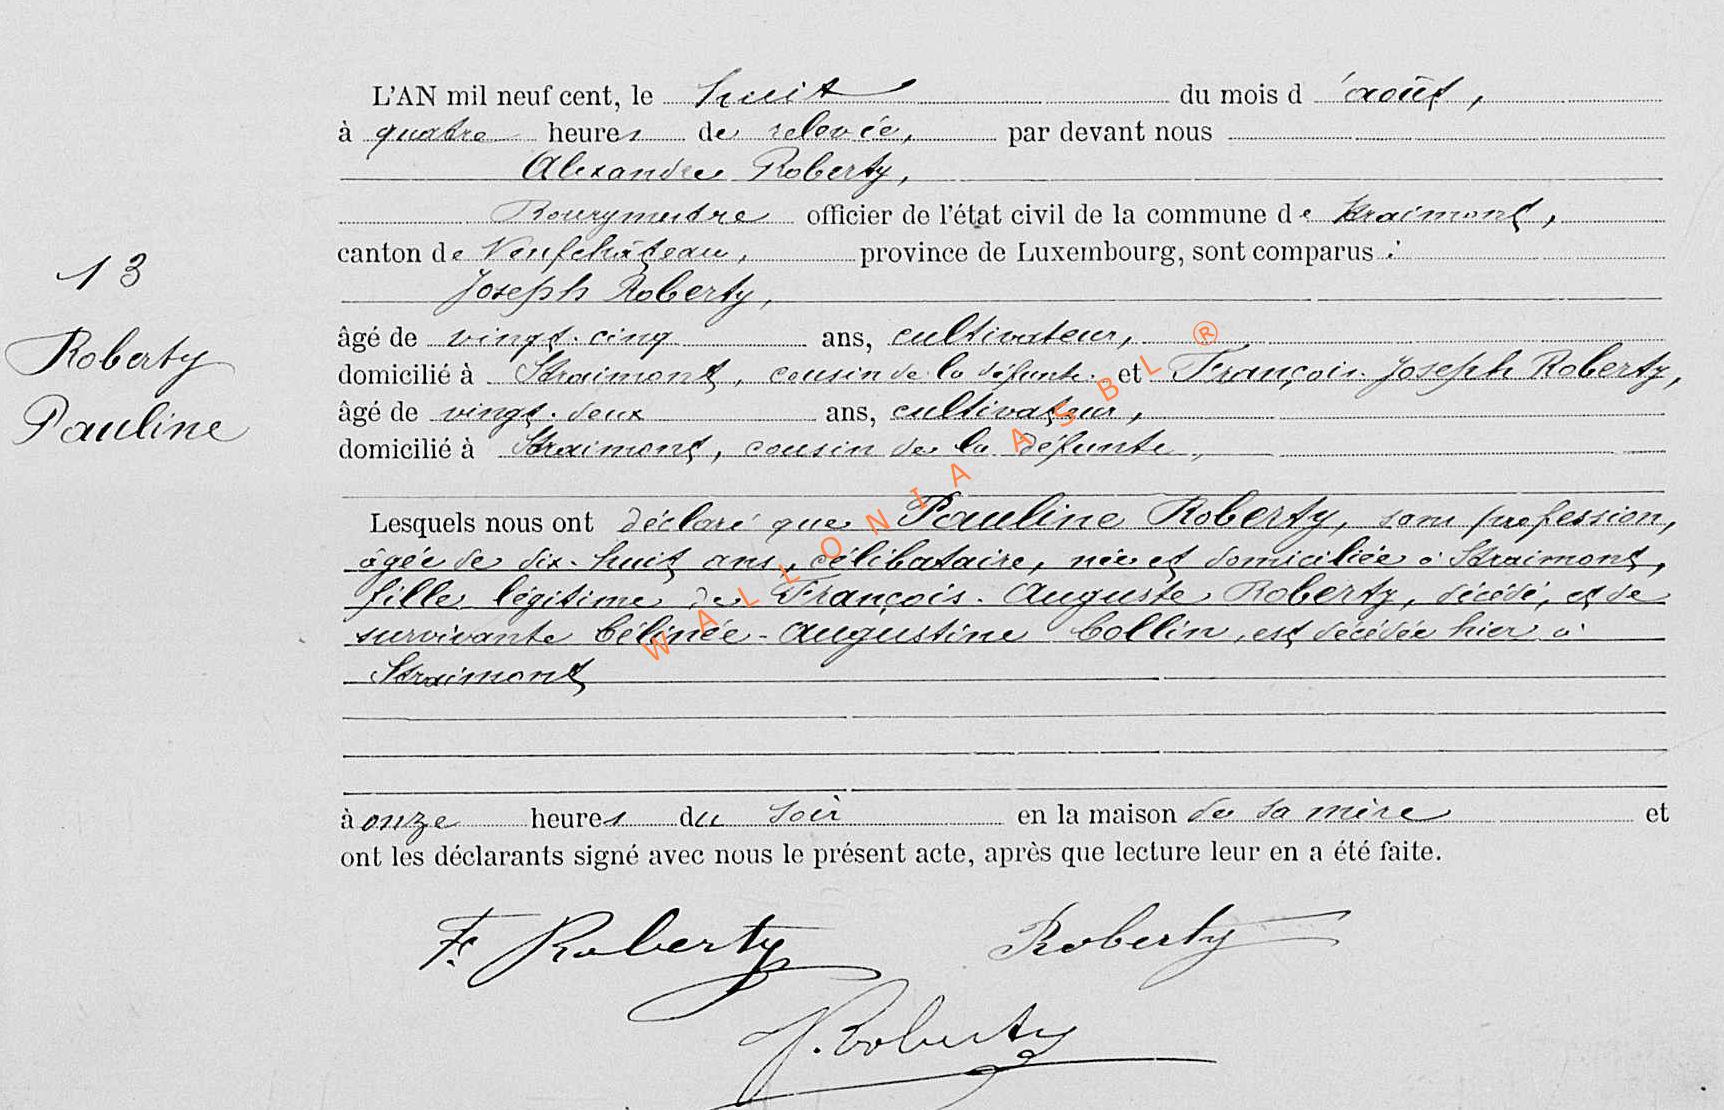 L'AN mil neuf cent, le huit du mois d'août,
à quatre heures de relevée, par devant nous
Alexandre Roberty,
Bourgmestre officier de l'état civil de la commune de Straimont,
canton de Neufchâteau, province de Luxembourg, sont comparus :
Joseph Roberty,
âgé de vingt-cinq ans, cultivateur,
domicilié à Straimont, cousin de la défunte et François-Joseph Roberty,
âgé de vingt-deux ans, cultivateur,
domicilié à Straimont, cousin de la défunte,
13
Roberty
Pauline
Lesquels nous ont déclaré que Pauline Roberty, sans profession,
âgée de dix-huit ans, célibataire, née et domiciliée à Straimont,
fille légitime de François-Auguste Roberty, décédé, et de
survivante Célinée-Augustine Collin, est décédée hier à
Straimont
à onze heures du soir en la maison de sa mère et
ont les déclarants signé avec nous le présent acte, après que lecture leur en a été faite.
Fs. Roberty Roberty
J. Roberty
WALLONIA ASBL ®